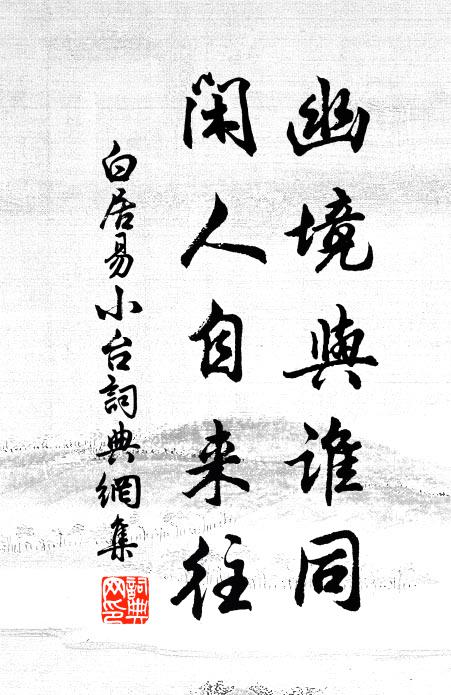 幽境與誰同
闲人自来往
白居易小台詞典網集
詞典网印